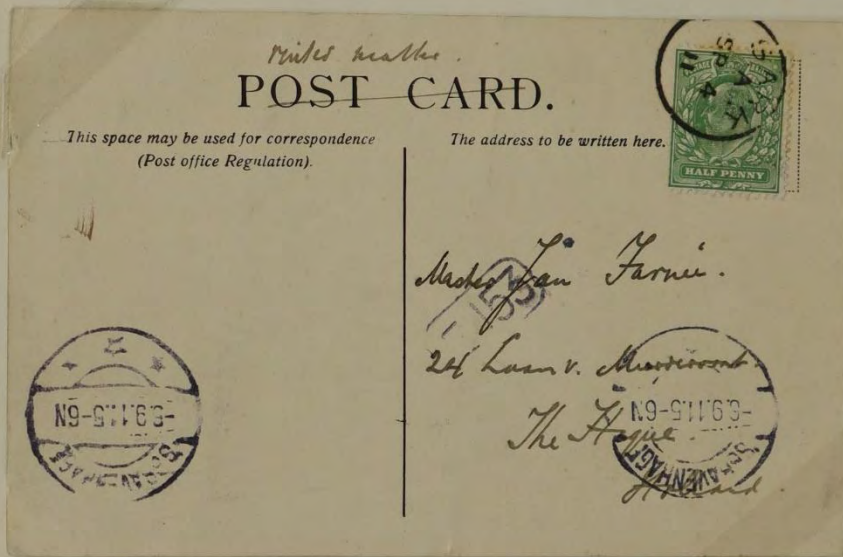 Printed matter.
POST CARD.
This space may be used for correspondence
(Post office Regulation).
The address to be written here.
HALF PENNY
SARK
A
SP 4
11
Master Jan Farnée.
24 Laan v. Meerdervoort.
The Hague.
Holland.
-6.9.11.5-6N
'SGRAVENHAGE
-6.9.11.5-6N
'SGRAVENHAGE